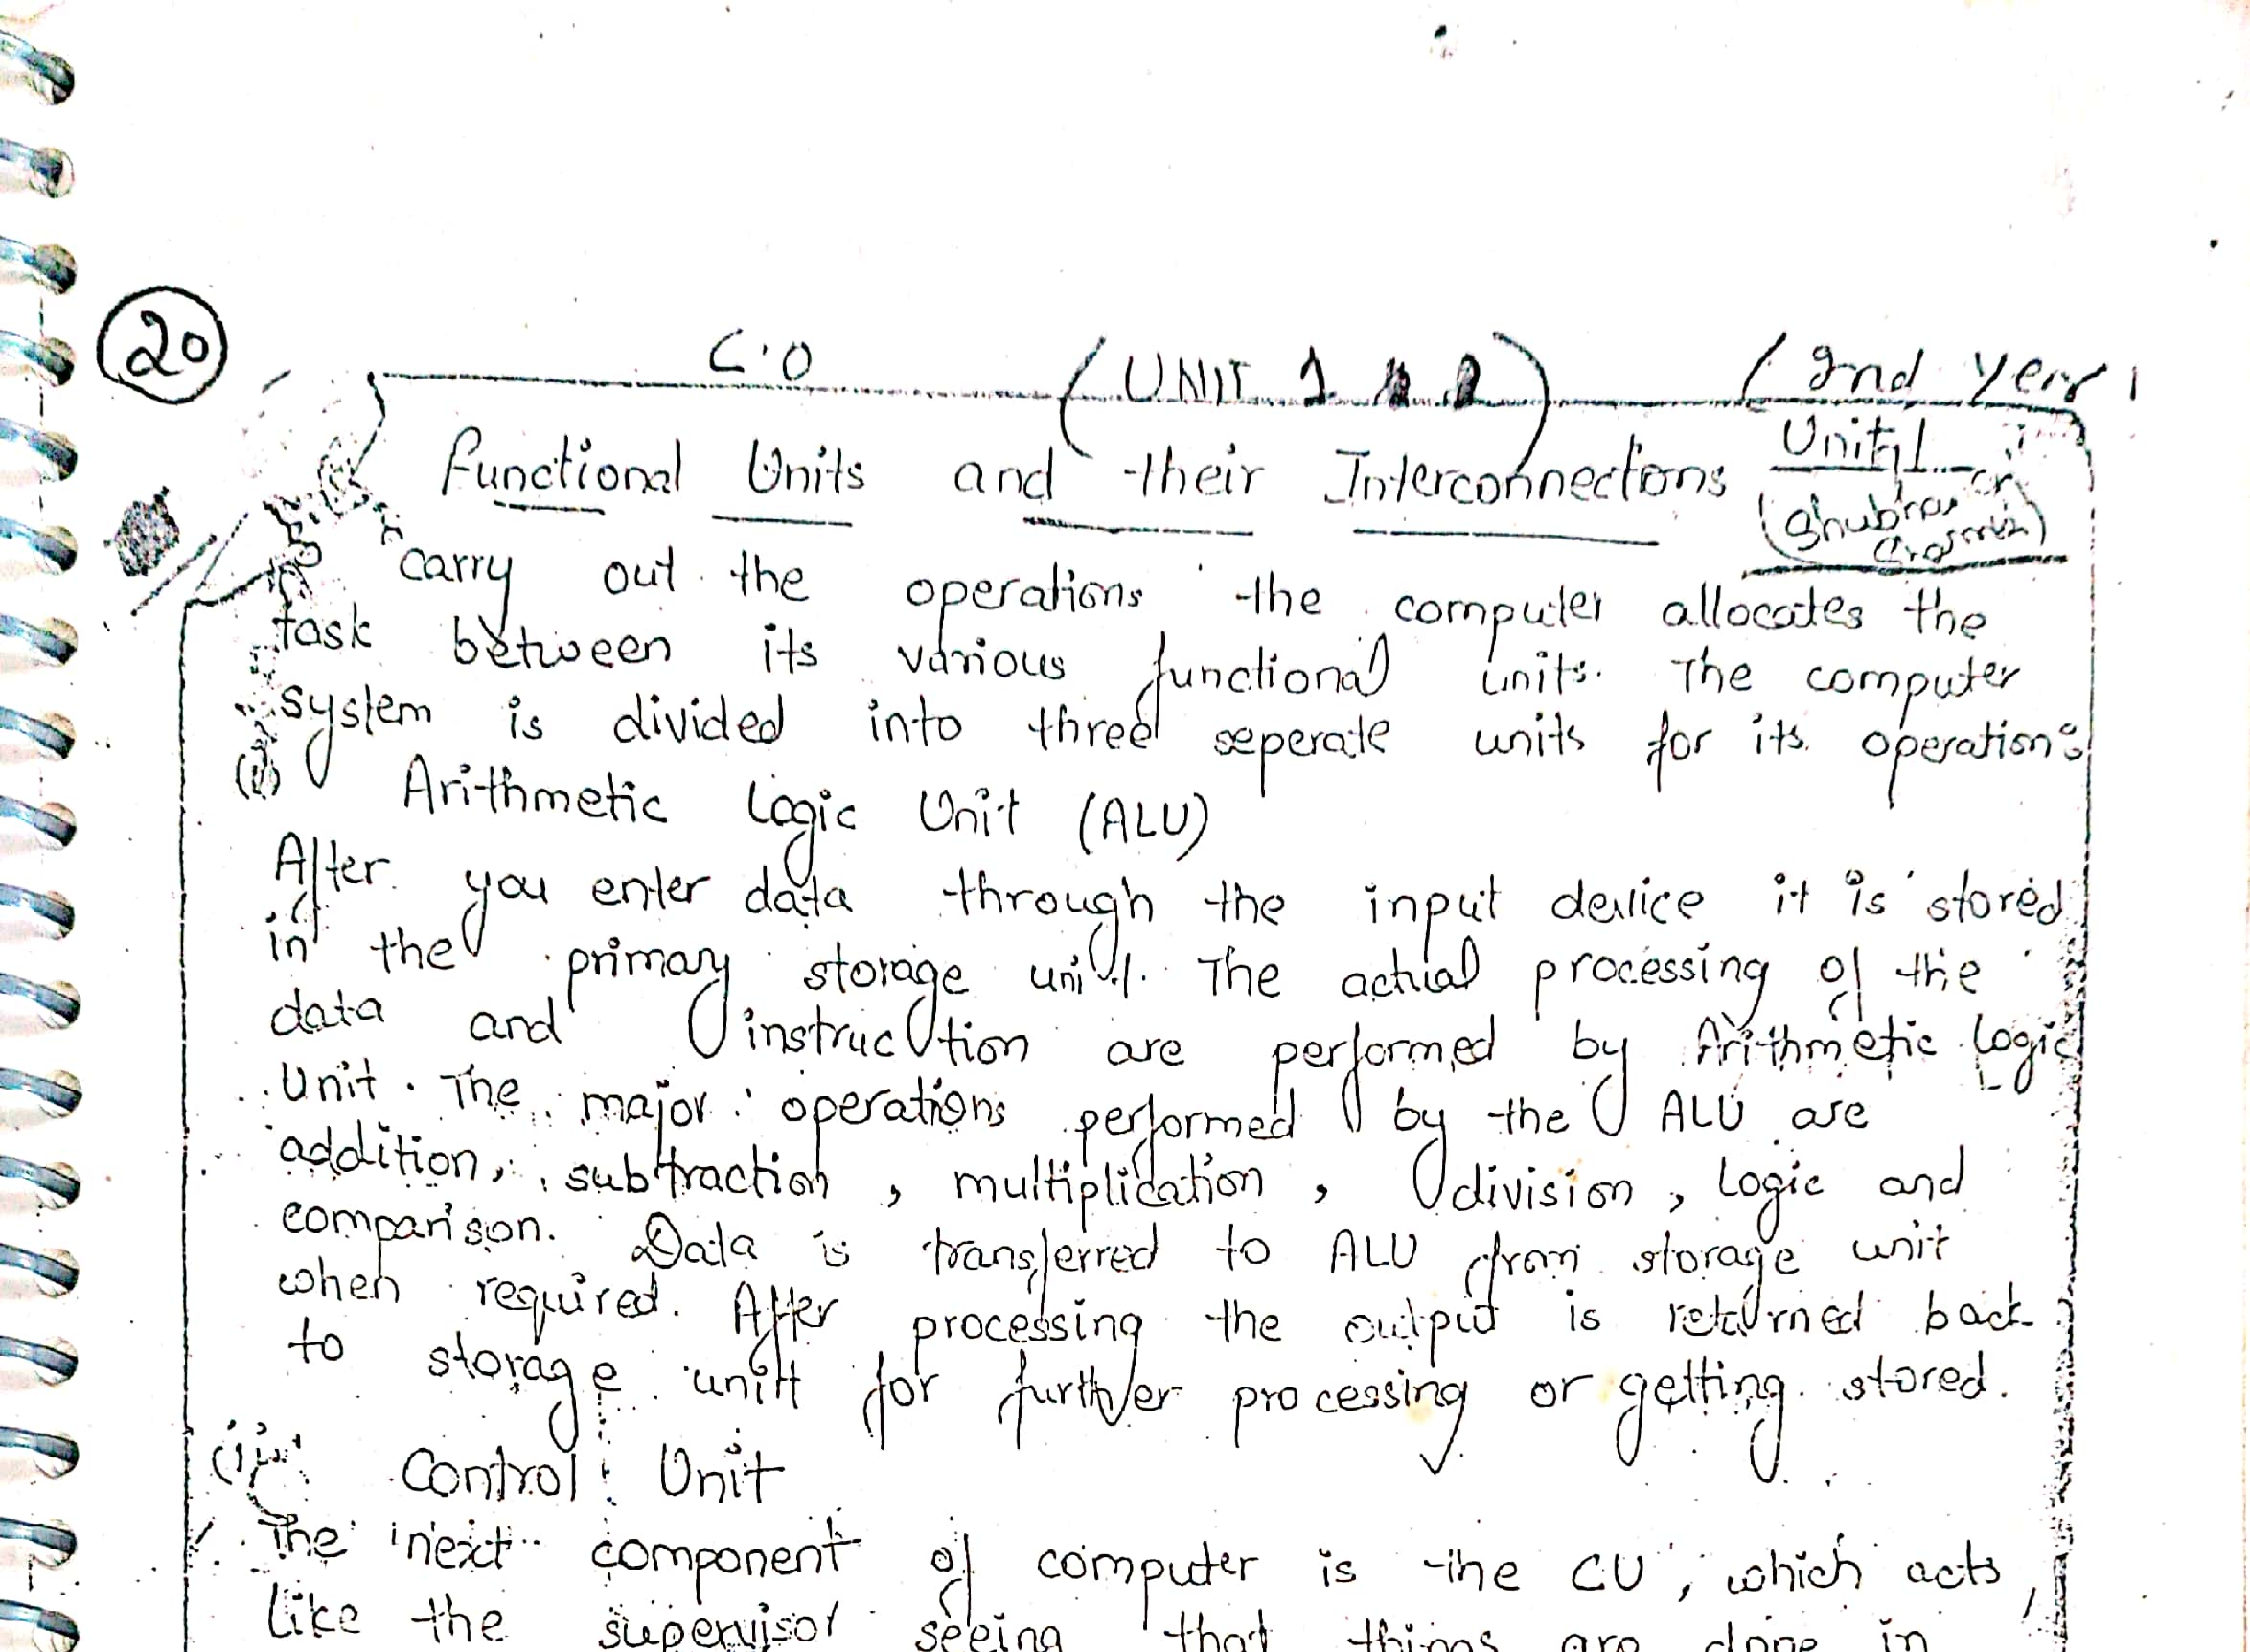 20
C.O (UNIT 1 & 2) (2nd year
Unit 1
Functional Units and their Interconnections
carry out the operations the computer allocates the
task between its various functional units. The computer
system is divided into three seperate units for its operation:
(i) Arithmetic Logic Unit (ALU)
After you enter data through the input device it is stored
in the primary storage unit. The actual processing of the
data and instruction are performed by Arithmetic Logic
Unit. The major operations performed by the ALU are
addition, subtraction, multiplication, division, Logic and
comparison. Data is transferred to ALU from storage unit
when required. After processing the output is returned back
to storage unit for further processing or getting stored.
(ii) Control Unit
The next component of computer is the CU, which acts
like the supervisor seeing that things are done in